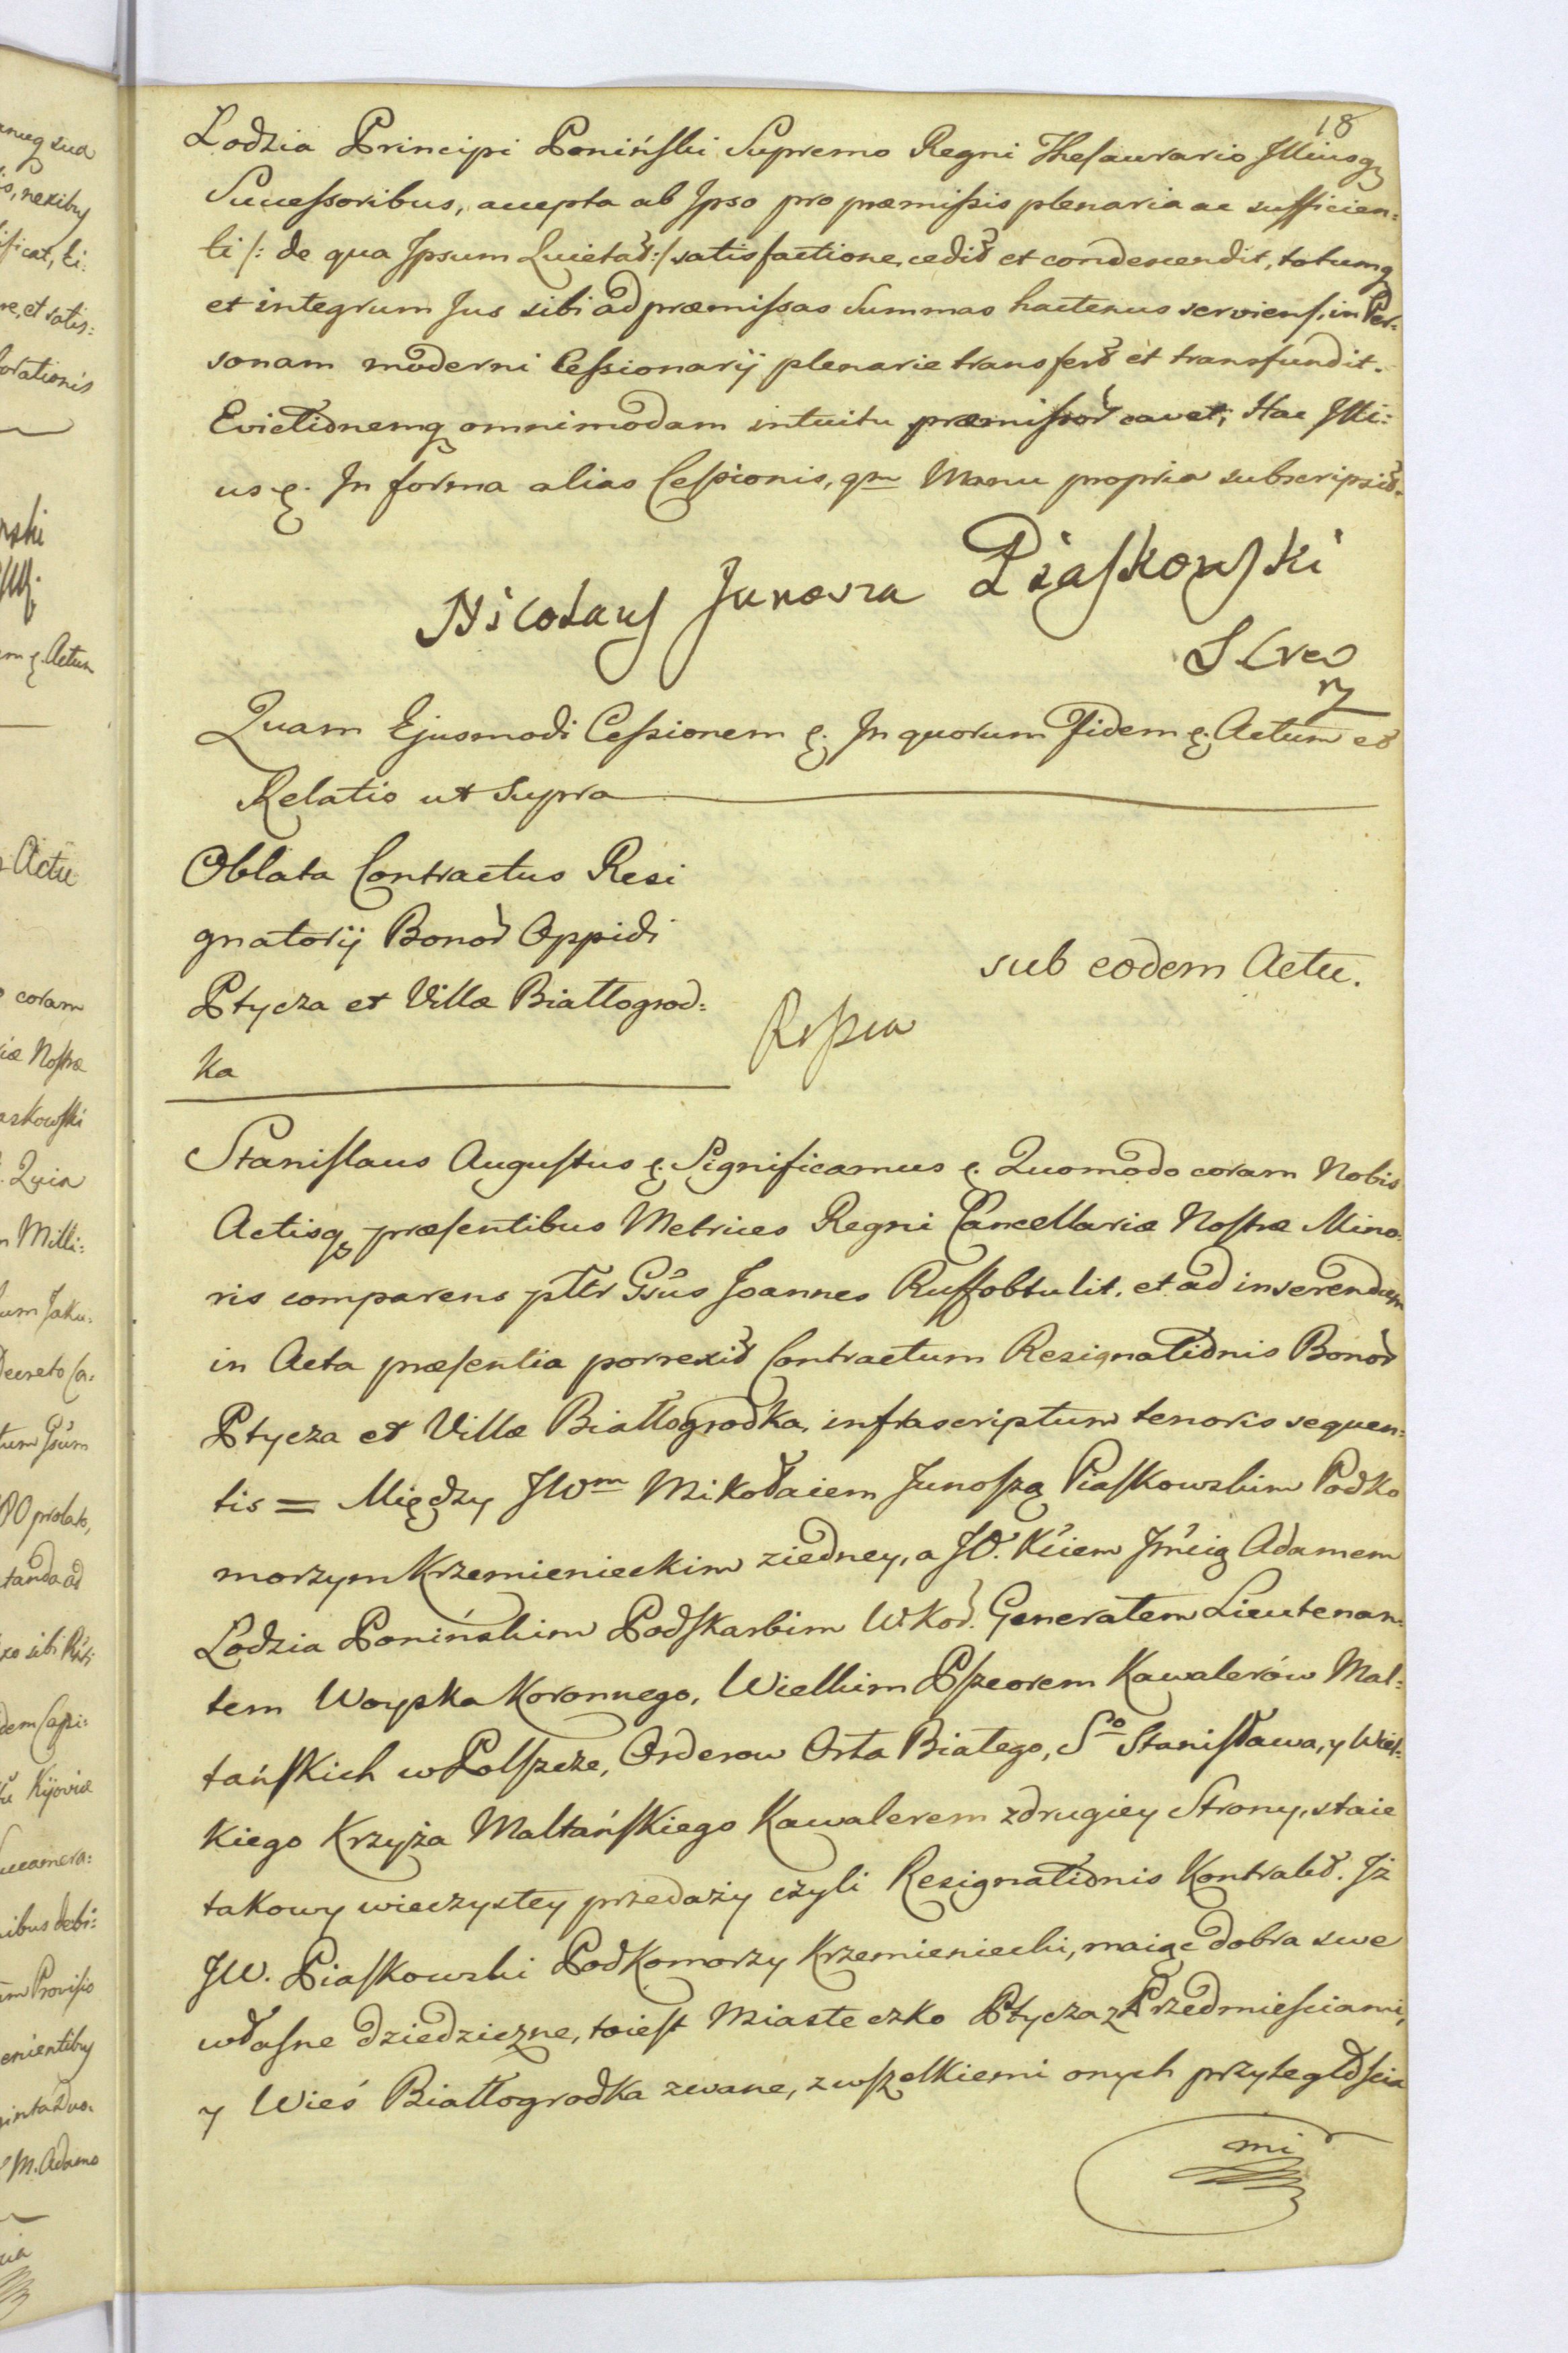 18
Lodzia Principi Poniński Supremo Regni Thesaurario Illiusq
Successoribus, accepta ab Ipso pro præmissis plenaria ac sufficien:
ti /: de qua Ipsum Quietat :/ satisfactione, cedit et condescendit, totumq
et integrum Jus sibi ad præmissas Summas hactenus serviens, in Per:
sonam moderni Cessionarij plenarie transfert et transfundit.
Evictionemq omnimodam intuitu præmissor cavet; Hac Illi:
us etc. In forma alias Cessionis, qm Manu propria subscripsit.
Nicolaus Junosza Piaskowski
S Crem
Quam Ejusmodi Cessionem etc. In quorum Fidem etc. Actum et
Relatio ut supra
Oblata Contractus Resi
gnatorij Bonor Oppidi
Ptycza et Villæ Białłogrod:
ka
sub eodem Actu.
Stanislaus Augustus etc. Significamus etc. Quomodo coram Nobis
Actisq præsentibus Metrices Regni Cancellariæ Nostræ Mino:
ris comparens pltr Gsus Joannes Ruff obtulit, et ad inserendum
in Acta præsentia porrexit Contractum Resignationis Bonor
Ptycza et Villæ Białłogrodka, infrascriptum tenoris sequen:
tis = Między JWm Mikołaiem Junoszą Piaskowskim Podko
morzym Krzemienieckim ziedney, a JO. Kciem Jmcią Adamem
Lodzia Ponińskim Podskarbim W. Kor. Generałem Lieutenan:
tem Woyska Koronnego, Wielkim Pszeorem Kawalerów Mal:
tańskich w Polszcze, Orderow Orła Białego, Sgo Stanisława, y Wiel:
kiego Krzyża Maltańskiego Kawalerem z drugiey Strony, staie
takowy wieczystey przedaży czyli Resignationis Kontrakt. Iż
JW. Piaskowski Podkomorzy Krzemieniecki, maiąc dobra swe
własne dziedziczne, toiest Miasteczko Ptycza z Przedmieściami,
y Wieś Białłogrodka zwane, z wszelkiemi onych przyległościa
mi